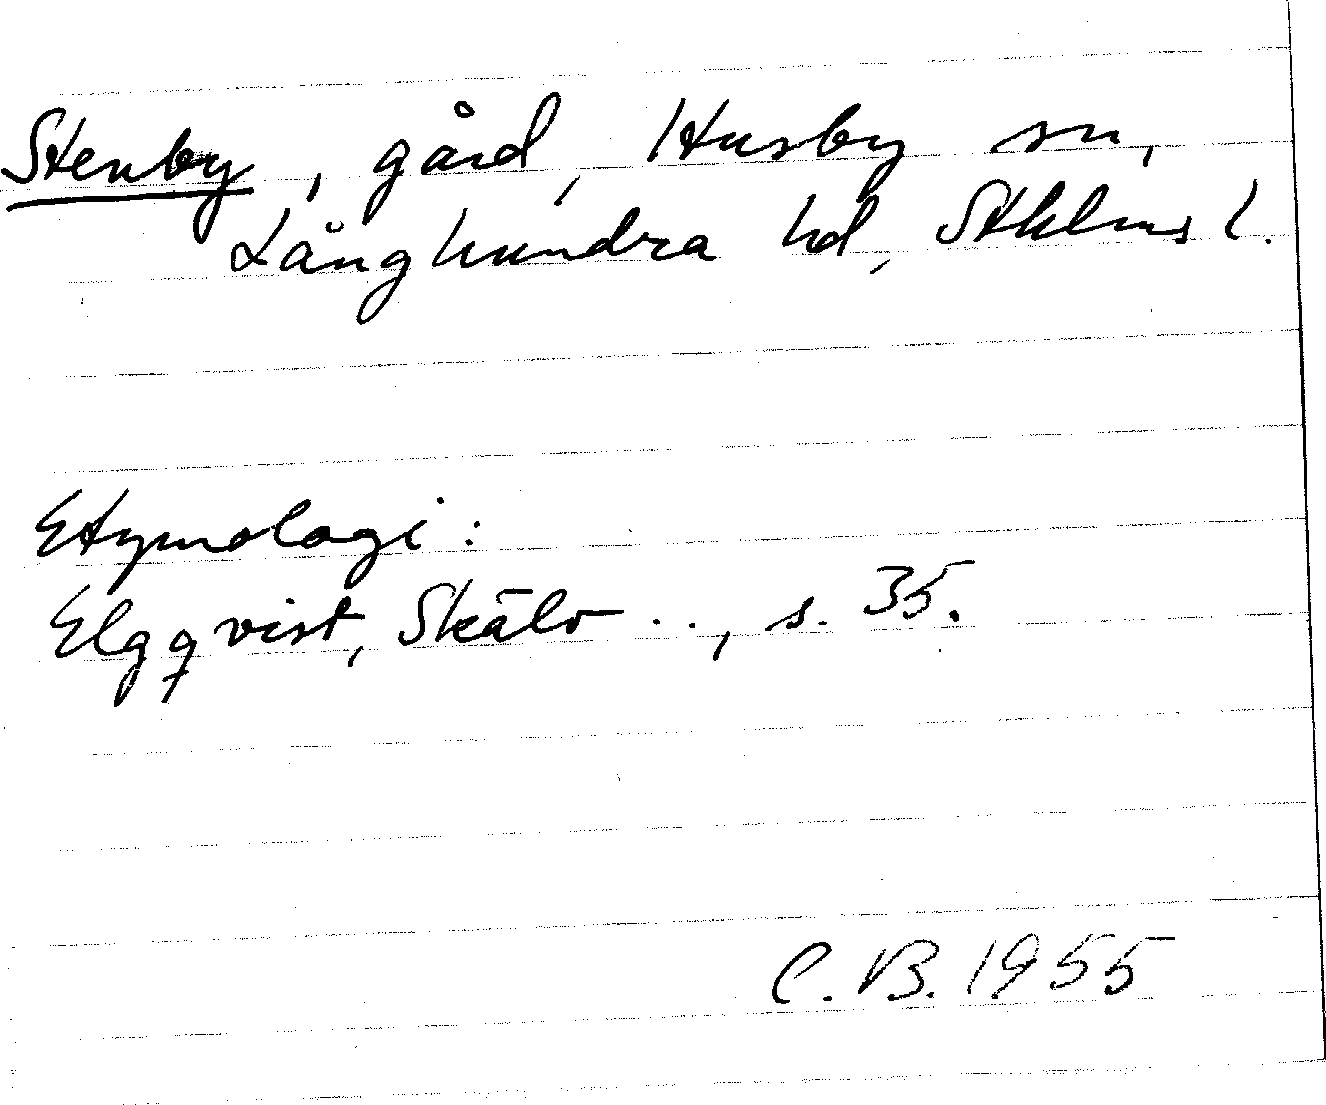 Stenby, gård, Husby sn,
Långhundra hd, Sthlms l.
Etymologi:
Elgqvist, Skälv . ., s. 35.
C. B. 1955